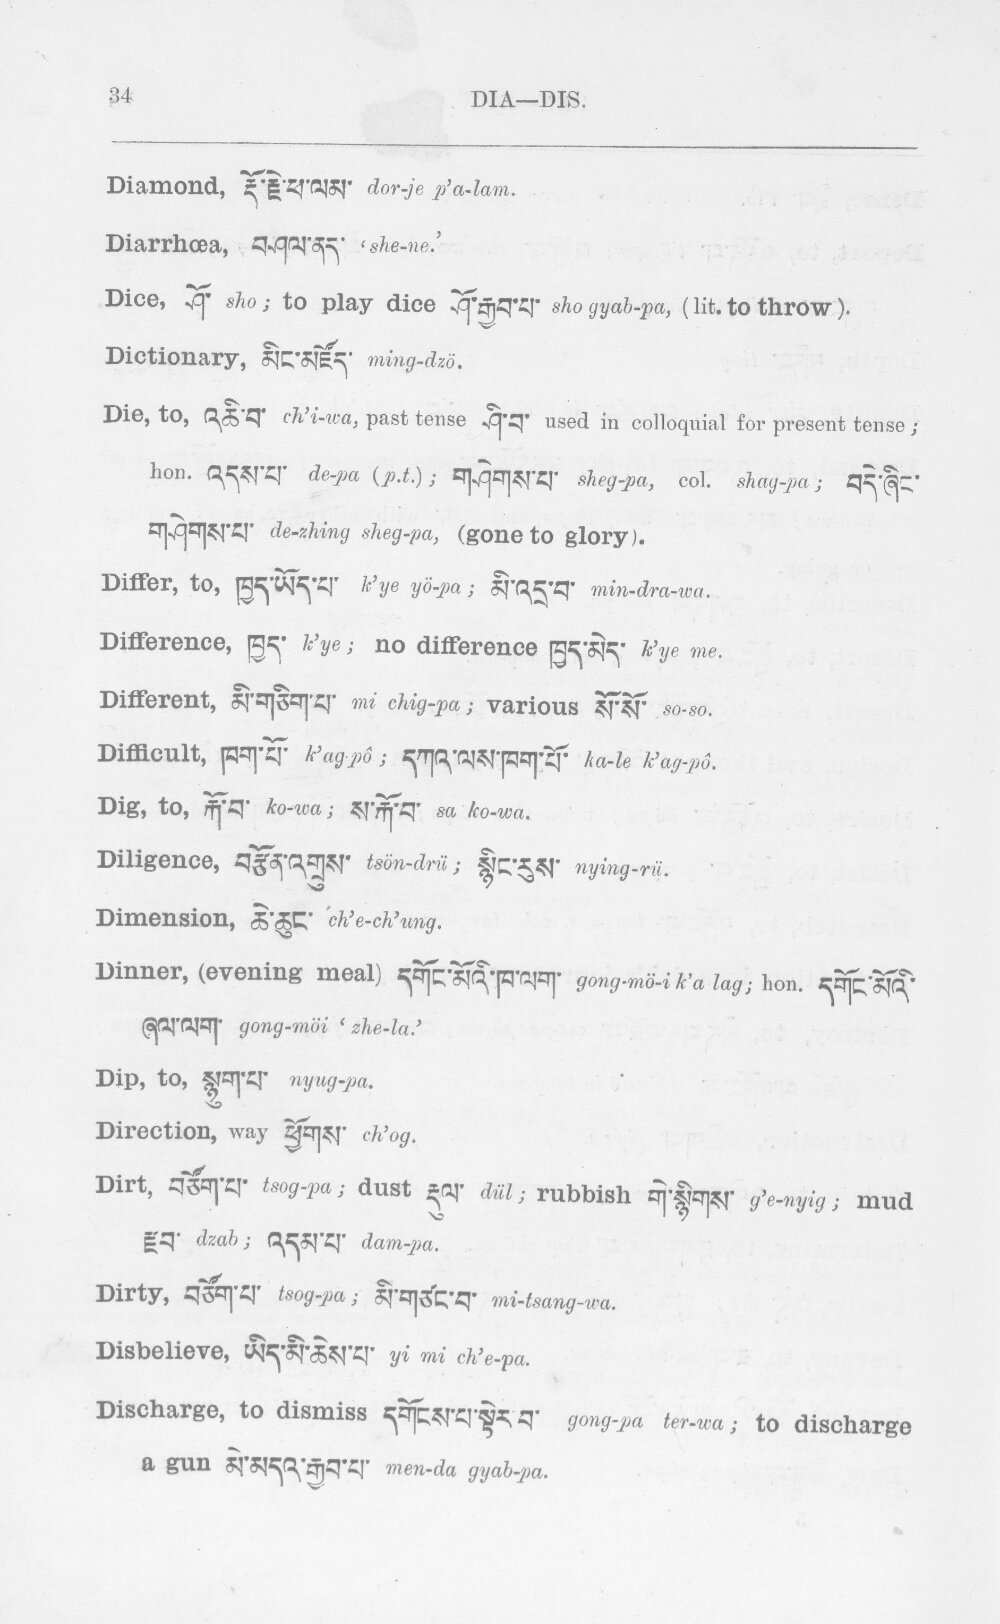 34
DIA—DIS.
Diamond, རྡོ་རྗེ་ཕ་ལམ་ dor-je p’a-lam.
Diarrhœa, བཤལ་ནད་ ‘she-ne.’
Dice, ཤོ་ sho; to play dice ཤོ་རྒྱབ་པ་ sho gyab-pa, (lit. to throw).
Dictionary, མིང་མཛོད་ ming-dzö.
Die, to, འཆི་བ་ ch’i-wa, past tense ཤི་བ་ used in colloquial for present tense;
hon. འདས་པ་ de-pa (p.t.); གཤེགས་པ་ sheg-pa, col. shag-pa; བདེ་ཞིང་
གཤེགས་པ་ de-zhing sheg-pa, (gone to glory).
Differ, to, ཁྱད་ཡོད་པ་ k’ye yö-pa; མི་འདྲ་བ་ min-dra-wa.
Difference, ཁྱད་ k’ye; no difference ཁྱད་མེད་ k’ye me.
Different, མི་གཅིག་པ་ mi chig-pa; various སོ་སོ་ so-so.
Difficult, ཁག་པོ་ k’ag-pô; དཀའ་ལས་ཁག་པོ་ ka-le k’ag-pô.
Dig, to, རྐོ་བ་ ko-wa; ས་རྐོ་བ་ sa ko-wa.
Diligence, བརྩོན་འགྲུས་ tsön-drü; སྙིང་རུས་ nying-rü.
Dimension, ཆེ་ཆུང་ ch’e-ch’ung.
Dinner, (evening meal) དགོང་མོའི་ཁ་ལག་ gong-mö-i k’a lag; hon. དགོང་མོའི་
ཞལ་ལག་ gong-möi ‘zhe-la.’
Dip, to, སྙུག་པ་ nyug-pa.
Direction, way ཕྱོགས་ ch’og.
Dirt, བཙོག་པ་ tsog-pa; dust རྡུལ་ dül; rubbish གེ་སྙིགས་ g’e-nyig; mud
རྫབ་ dzab; འདམ་པ་ dam-pa.
Dirty, བཙོག་པ་ tsog-pa; མི་གཙང་བ་ mi-tsang-wa.
Disbelieve, ཡིད་མི་ཆེས་པ་ yi mi ch’e-pa.
Discharge, to dismiss དགོངས་པ་སྟེར་བ་ gong-pa ter-wa; to discharge
a gun མེ་མདའ་རྒྱབ་པ་ men-da gyab-pa.